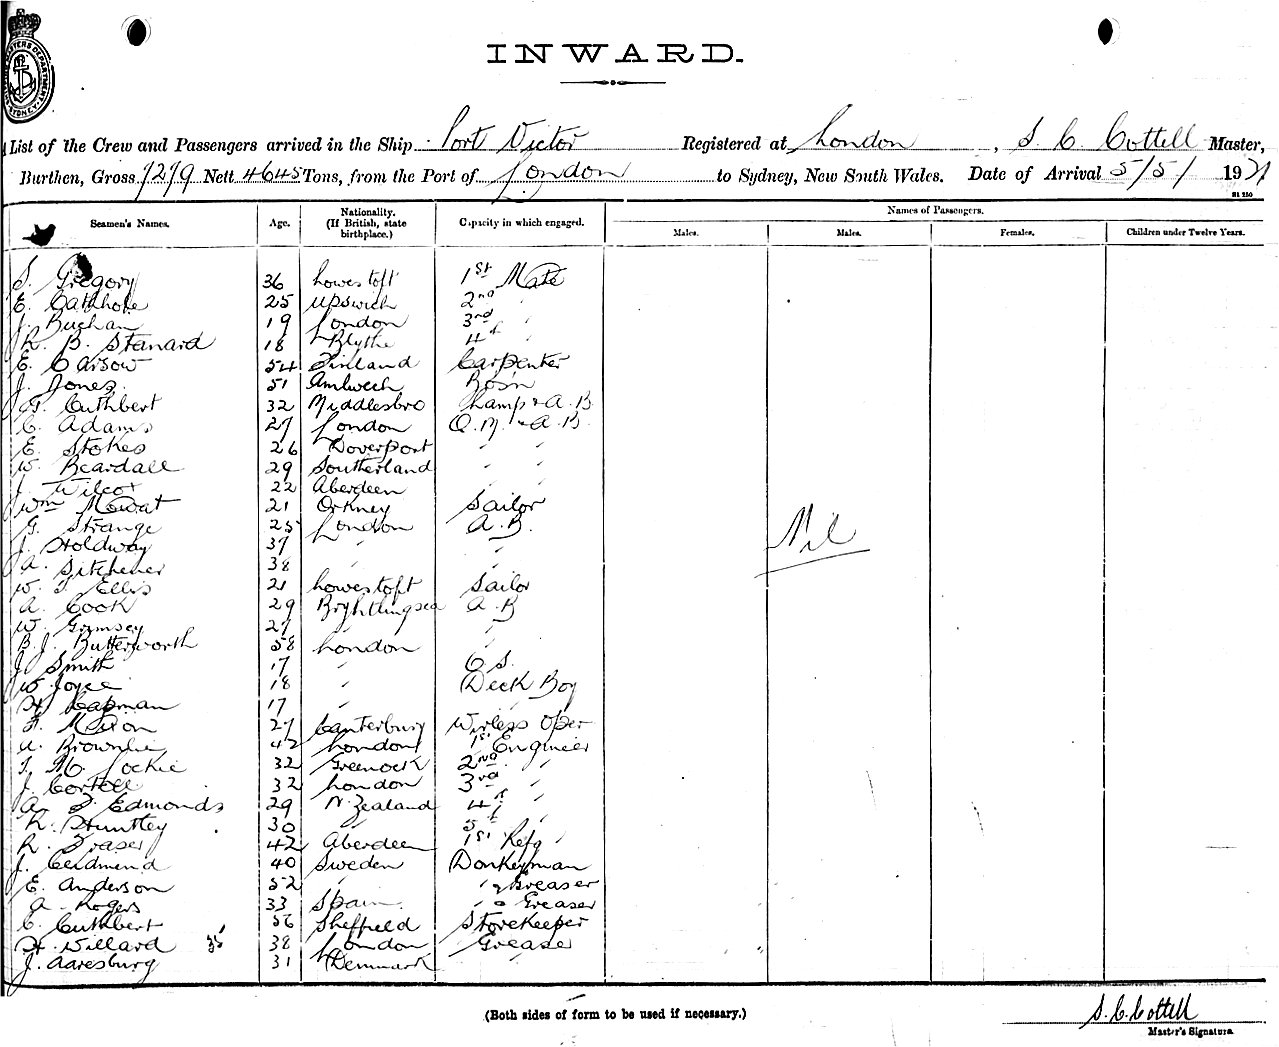 INWARD.
List of the Crew and Passengers arrived in the Ship Port Victor Registered at London, S. C. Cottell Master,
Burthen, Gross 7279 Nett 4645 Tons, from the Port of London to Sydney, New South Wales. Date of Arrival 5/5/ 1921
Seamen's Names. Age. Nationality. (If British, state birthplace.) Capacity in which engaged. Names of Passengers.
Males. Males. Females. Children under Twelve Years.
S. Gregory 36 Lowestoft 1st Mate
E. Cathhole 25 Upswich 2nd "
J. Buchan 19 London 3rd "
R. B. Stanard 18 Blythe 4th "
E. Carsow 54 Finland Carpenter
J. Jones 51 Amlwech Bosn
G. Cuthbert 32 Middlesbro Lamp & A.B.
C. Adams 27 London Q.M. & A.B.
E. Stokes 26 Doverport " "
W. Beardall 29 Southerland " "
J. Wilcox 22 Aberdeen " "
Wm Mowat 21 Orkney Sailor
G. Strange 25 London A.B.
J. Holdway 37 " "
A. Sitchener 38 " "
W. J. Ellis 21 Lowestoft Sailor
A. Cook 29 Brightlingsea A.B
W. Grimsey 27 " "
B. J. Butterworth 58 London "
J. Smith 17 " O.S.
W. Joyce 18 " Deck Boy
H. Capman 17 " "
F. Nixon 27 Canterbury Wirless Oper
A. Brownlie 42 London 1st Engineer
T. M. Lockie 32 Greenock 2nd "
J. Cortell 32 London 3rd "
A. F. Edmonds 29 N. Zealand 4th "
R. Huntley 30 " 5th "
R. Fraser 42 Aberdeen 1st Refg "
J. 40 Sweden Donkeyman
E. Anderson 52 " " & Greaser
A. Rogers 33 Spain " & Greaser
C. Cuthbert 56 Sheffield Storekeeper
H. Willard 38 London Grease
J. Aaresburg 31 Denmark "
Nil
(Both sides of form to be used if necessary.)
S. C. Cottell
Master's Signature.